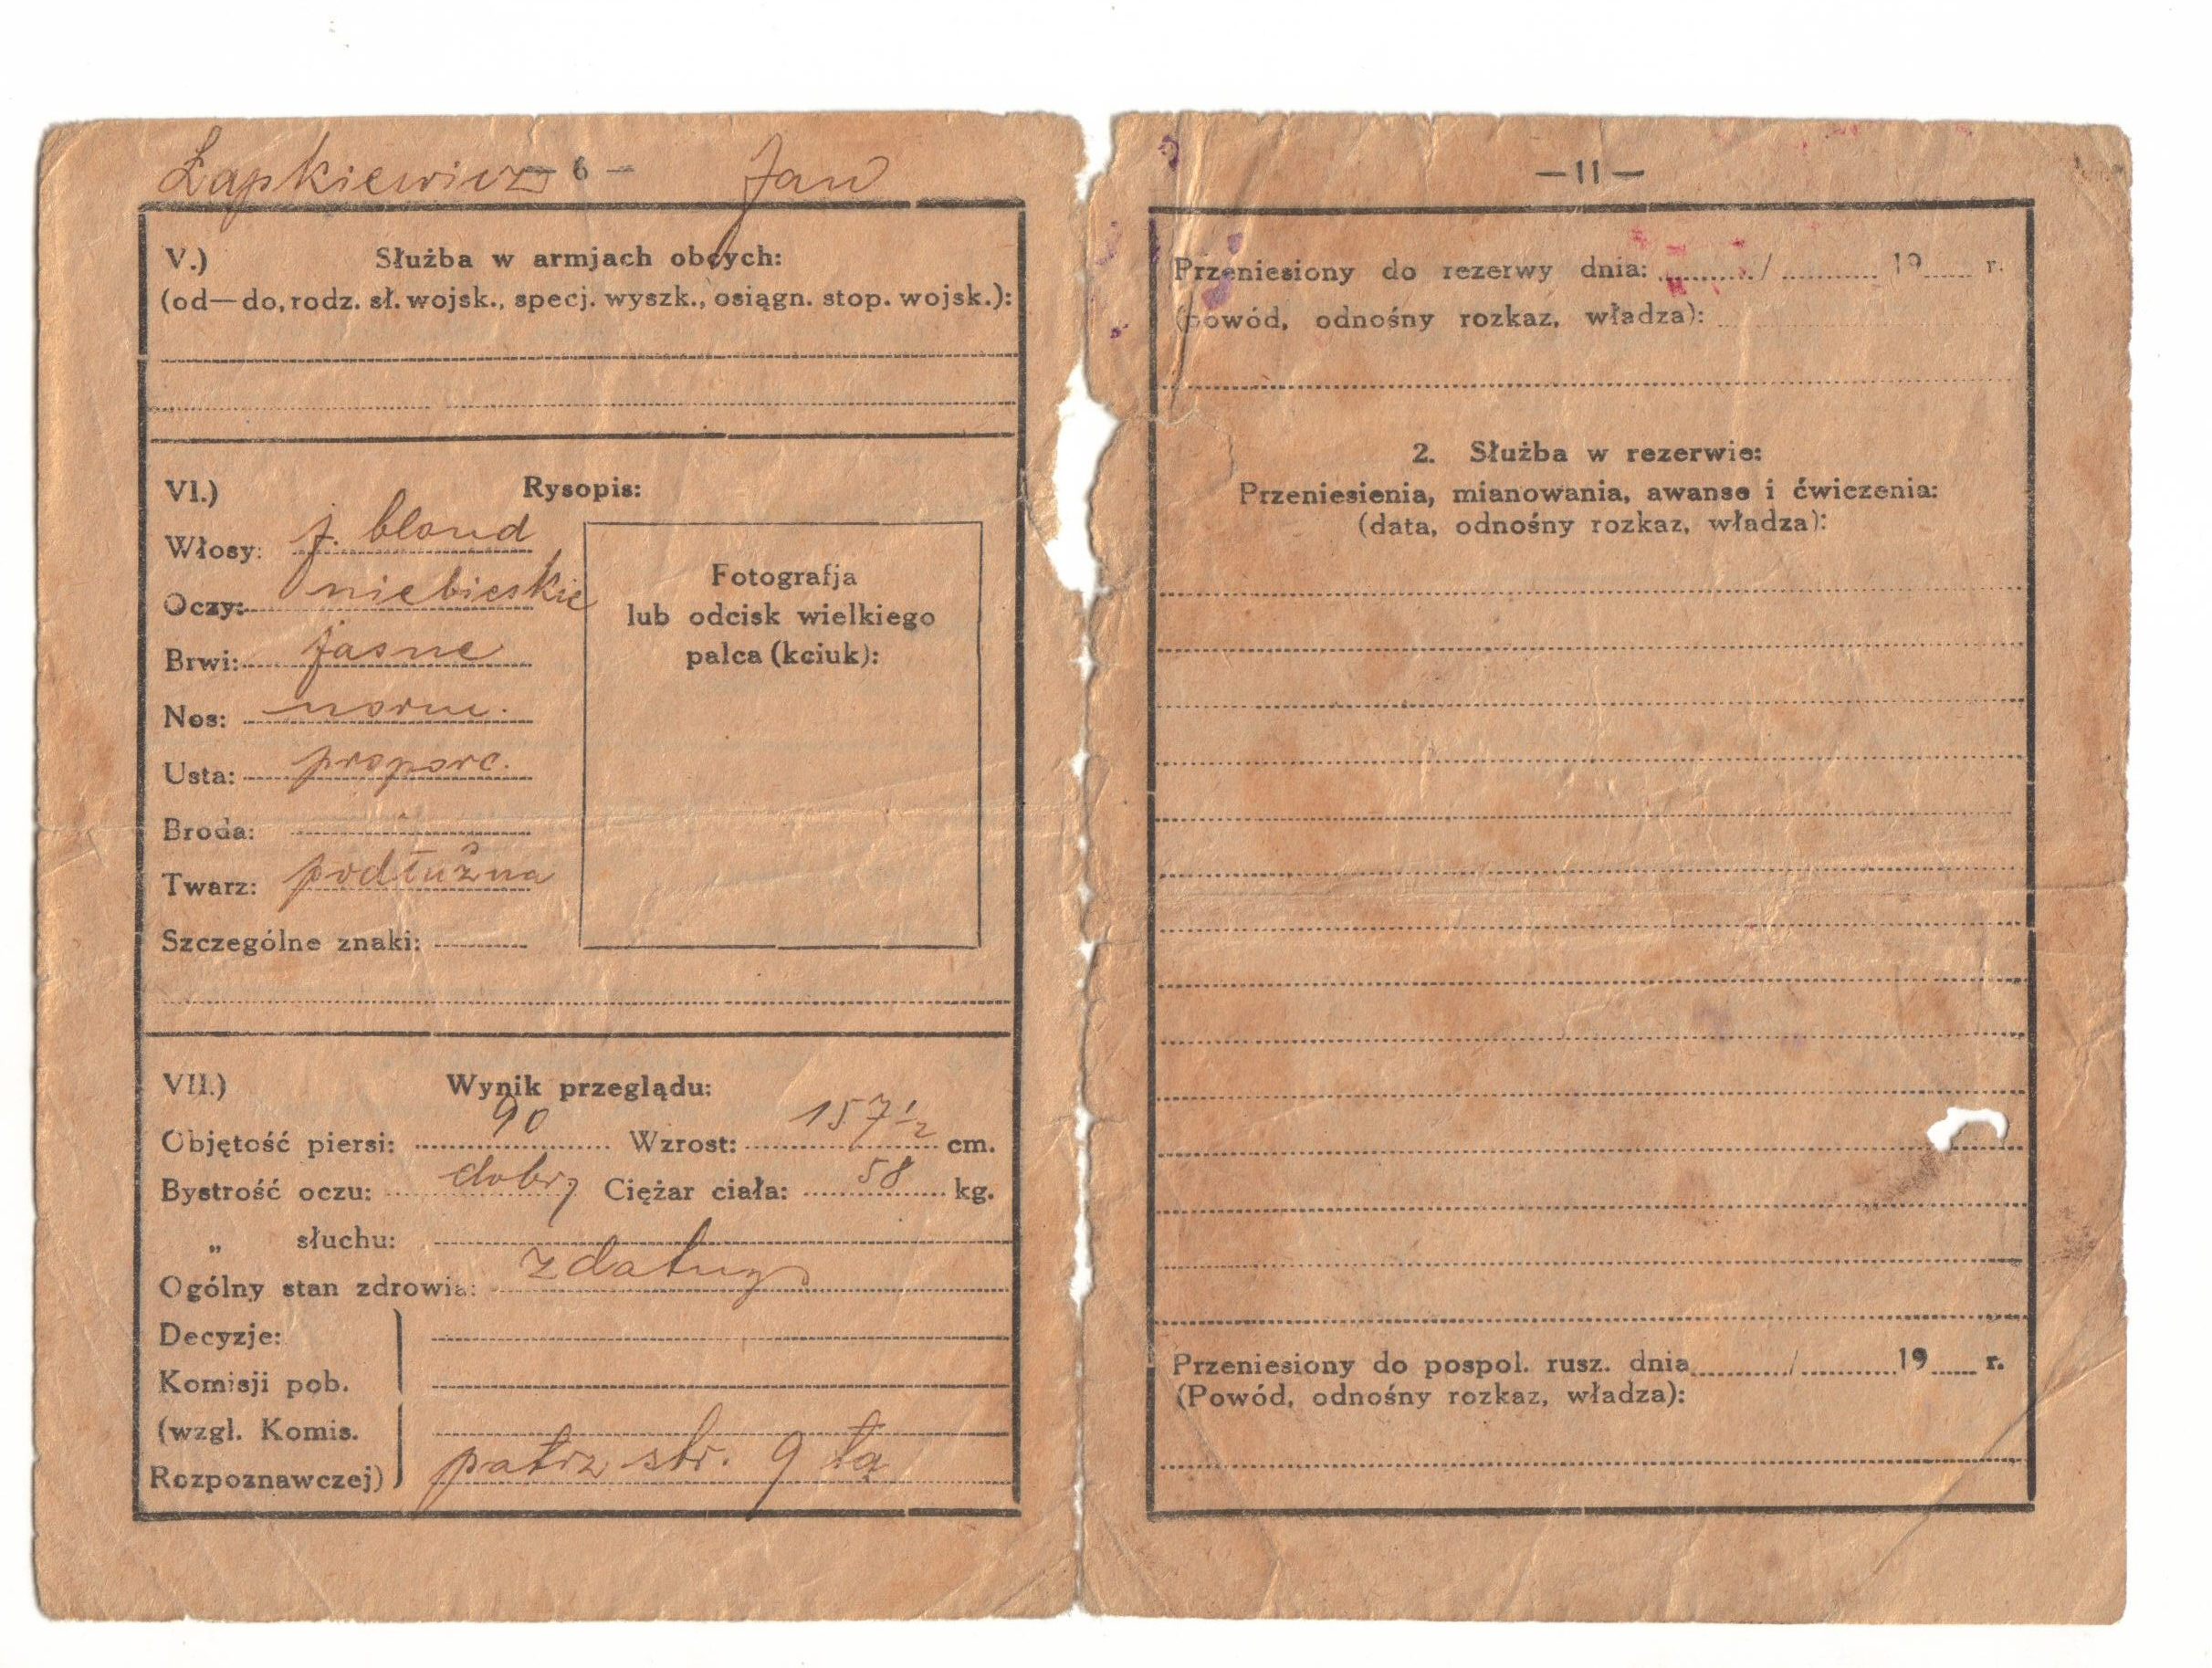 Łapkiewicz — 6 — Jan
V.) Służba w armjach obcych:
(od—do, rodz. sł. wojsk., specj. wyszk., osiągn. stop. wojsk.):
VI.) Rysopis:
Włosy: j. blond
Oczy: niebieskie
Brwi: jasne
Nos: norm.
Usta: proporc.
Broda:
Twarz: podłużna
Szczególne znaki:
Fotografja
lub odcisk wielkiego
palca (kciuk):
VII.) Wynik przeglądu:
Objętość piersi: 90 Wzrost: 157 1/2 cm.
Bystrość oczu: dobry Ciężar ciała: 58 kg.
„ słuchu:
Ogólny stan zdrowia: zdatny
Decyzje:
Komisji pob.
(wzgl. Komis.
Rozpoznawczej) patrz str. 9 tą
—11—
Przeniesiony do rezerwy dnia: / 19 r.
(powód, odnośny rozkaz, władza):
2. Służba w rezerwie:
Przeniesienia, mianowania, awanse i ćwiczenia:
(data, odnośny rozkaz, władza):
Przeniesiony do pospol. rusz. dnia / 19 r.
(Powód, odnośny rozkaz, władza):